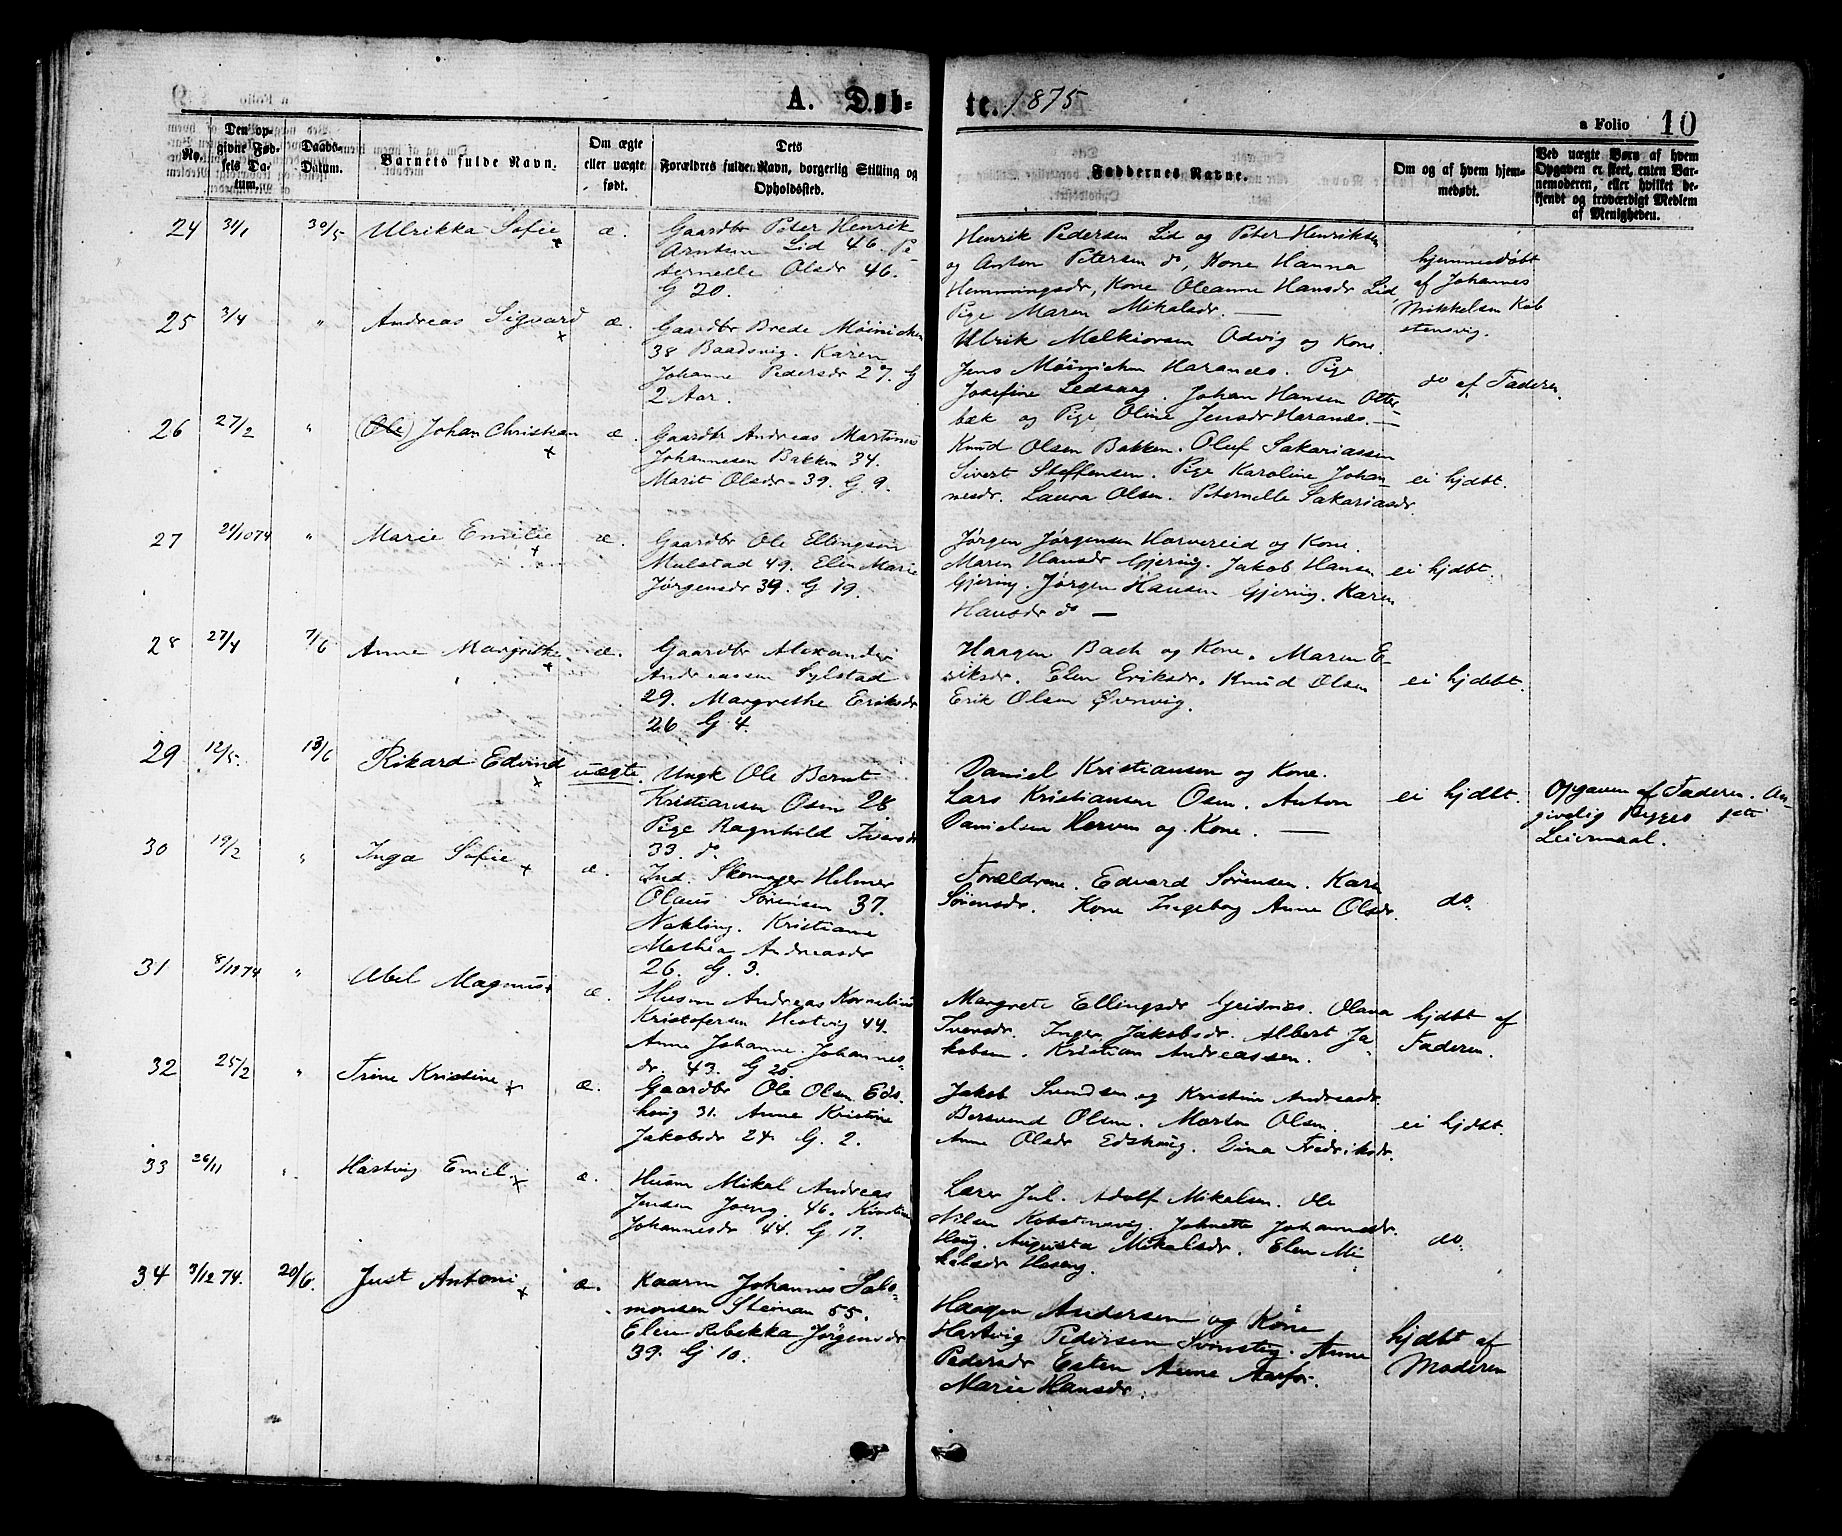 A. Døb-
te. 1875
a Folio 10
No.
Den op-
givne Fød-
sels Da-
tum.
Daabs-
Datum.
Barnets fulde Navn.
Om ægte
eller uægte
født.
Dets
Forældres fulde Navn, borgerlig Stilling og
Opholdssted.
Faddernes Navne.
Om og af hvem hjem-
medøbt.
Ved uægte Børn af hvem
Opgaven er skeet, enten Bar-
nemoderen, eller hvilket be-
kjendt og troværdigt Medlem
af Menigheden.
24 31/1 30/5 Ulrikka Sofie æ.
Gaardbr Peter Henrik
Arntsen Lid 46. Pe
ternelle Olsdr 46.
G 20.
Henrik Pedersen Lid og Peter Henriksen
og Anton Petersen do, Kone Hanna
Hemmingsdr, Kone Oleanne Hansdr Lid,
Pige Maren Mikalsdr. —
hjemmedøbt
af Johannes
Mikkelsen Kob
stensvig.
25 3/4 " Andreas Sigvard æ.
Gaardbr Brede Møinichen
38 Baadsvig. Karen
Johanne Pedersdr 27. G
2 Aar.
Ulrik Melkiorsen Odvig og Kone.
Jens Møinichen Haranes. Pige
Josefine Ledsaag. Johan Hansen Otter-
bæk og Pige Oline Jensdr Haranes. —
do af Faderen.
26 27/2 " (Ole) Johan Christian æ.
Gaardbr Andreas Martinus
Johannesen Bakken 34.
Marit Olsdr 39. G. 9.
Knud Olsen Bakken. Oluf Sakariassen
Sivert Steffensen. Pige Karoline Johan-
nesdr. Laura Olsen. Peternelle Sakariasdr.
ei hjdbt.
27 21/10 74 " Marie Emilie æ.
Gaardbr Ole Ellingsen
Mulstad 49. Elen Marie
Jørgensdr 39. G 19.
Jørgen Jørgensen Harvereid og Kone.
Maren Hansdr Gjering. Jakob Hansen
Gjering. Jørgen Hansen Gjering. Karen
Hansdr do —
ei hjdbt.
28 27/4 7/6 Anne Margrethe æ.
Gaardbr Alexander
Andreassen Sylstad
29. Margrethe Eriksdr
26 G 4.
Haagen Bach og Kone. Maren E-
riksdr. Elen Eriksdr. Knud Olsen
Erik Olsen Øvrvig.
ei hjdebt.
29 12/5. 13/6 Rikard Edvind uægte.
Ungk Ole Bernt
Kristiansen Osen 28
Pige Ragnhild Iversdr
33. do
Daniel Kristiansen og Kone.
Lars Kristiansen Osen. Anton
Danielsen Horven og Kone. —
ei hjdbt.
Opgaven af Faderen. An-
givelig Begges 1ste
Leiermaal.
30 19/2 " Inga Sofie æ.
Ind. Skomager Helmer
Olaus Sørensen 37.
Nakling. Kristiane
Mathea Andreasdr
26. G. 3.
Forældrene. Edvard Sørensen. Karen
Sørensdr. Kone Ingeborg Anne Olsdr.
do.
31 8/12 74 " Abel Magnus æ.
Husm Andreas Kornelius
Kristofersen Hestvig 44.
Anne Johanne Johannes-
dr. 43. G 20.
Margrete Ellingsdr Geidnes. Olava
Iversdr. Inger Jakobsdr. Albert Ja
kobsen. Kristian Andreassen.
hjdbt af
Faderen.
32 25/2 " Trine Kristine æ.
Gaardbr Ole Olsen Eds-
haug 31. Anne Kristine
Jakobsdr 24. G. 2.
Jakob Svendsen og Kristine Andreasdr.
Bersvend Olsen. Morten Olsen.
Anne Olsdr Edshaug. Dina Fredriksdr.
ei hjdbt.
33 26/11 " Hartvig Emil. æ.
Husm Mikal Andreas
Jensen 46. Kirstine
Johannesdr 44. G 17.
Lærer Jul. Adolf Mikalsen. Ole
Nilsen Kobstensvig. Johnette Johannesdr.
Haug. Augusta Mikalsdr. Elen Mi-
kalsdr Haseng.
do.
34 3/12 74. 20/6. Just Antoni æ.
Kaarm Johannes Salo-
monsen Steinan 55.
Elen Rebekka Jørgensdr
39. G 10.
Haagen Andersen og Kone
Hartvig Pedersen Svinstig. Anne
Pedersdr Esten Anne Aarfor.
Marie Hansdr.
hjdbt af
Moderen